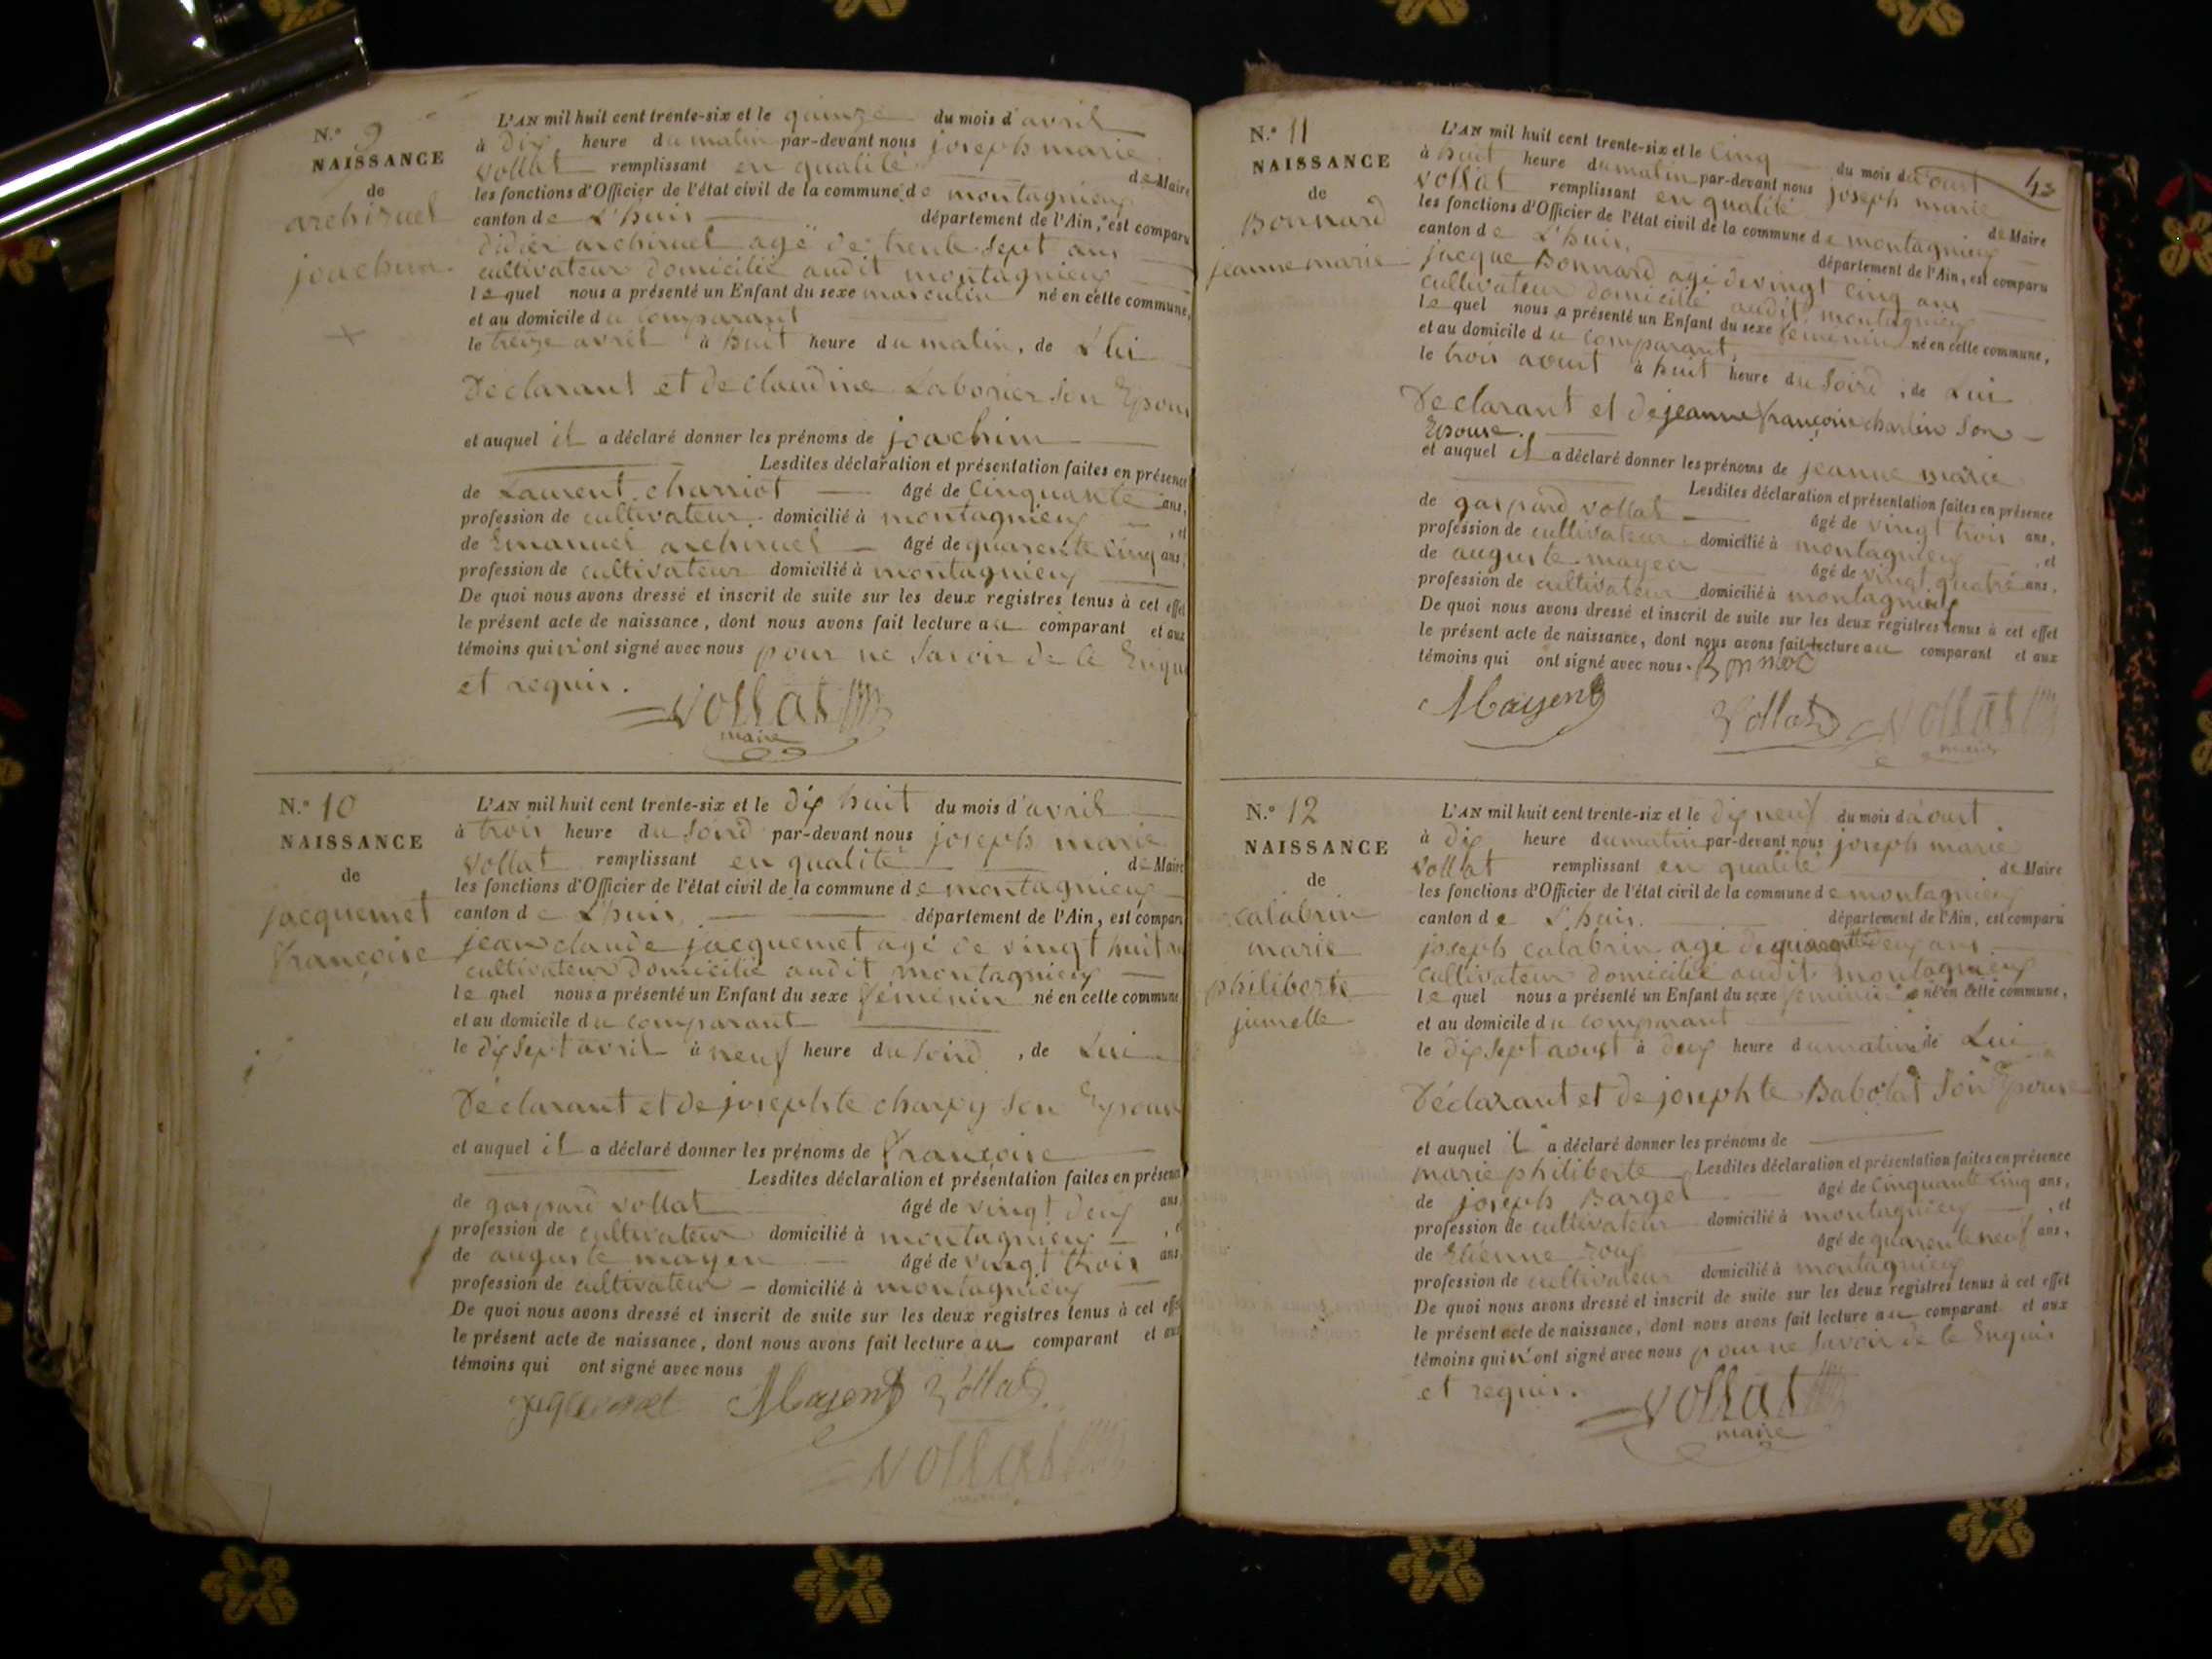 N.° 9
NAISSANCE
de
archiruel
joachim
L'AN mil huit cent trente-six et le quinze du mois d'avril
à dix heure du matin par-devant nous joseph marie
vollat remplissant en qualité de Maire
les fonctions d'Officier de l'état civil de la commune de montagnieux
canton de L'huis département de l'Ain, est comparu
didier archiruel agé de trente sept ans
cultivateur domicilié audit montagnieux
lequel nous a présenté un Enfant du sexe masculin né en cette commune,
et au domicile du comparant
le treize avril à huit heure du matin, de Lui
Déclarant et de claudine Laborier son Epouse
et auquel il a déclaré donner les prénoms de joachim
Lesdites déclaration et présentation faites en présence
de Laurent charriot âgé de Cinquante ans,
profession de cultivateur domicilié à montagnieux , et
de Emanuel archiruel âgé de quarente Cinq ans,
profession de cultivateur domicilié à montagnieux
De quoi nous avons dressé et inscrit de suite sur les deux registres tenus à cet effet
le présent acte de naissance, dont nous avons fait lecture au comparant et aux
témoins qui n'ont signé avec nous pour ne savoir de ce Enquis
et requis.
vollat
maire
N.° 10
NAISSANCE
de
jacquemet
françoise
L'AN mil huit cent trente-six et le dix huit du mois d'avril
à trois heure du soird par-devant nous joseph marie
vollat remplissant en qualité de Maire
les fonctions d'Officier de l'état civil de la commune de montagnieux
canton de L'huis département de l'Ain, est comparu
jean claude jacquemet agé de vingt huit
cultivateur domicilié audit montagnieux
lequel nous a présenté un Enfant du sexe féminin né en cette commune
et au domicile du comparant
le dix sept avril à neuf heure du soird , de Lui
Déclarant et de josephte charpy son Epouse
et auquel il a déclaré donner les prénoms de françoise
Lesdites déclaration et présentation faites en présence
de gaspard vollat âgé de vingt deux ans,
profession de cultivateur domicilié à montagnieux , et
de auguste mayen âgé de vingt trois ans
profession de cultivateur domicilié à montagnieux
De quoi nous avons dressé et inscrit de suite sur les deux registres tenus à cet effet
le présent acte de naissance, dont nous avons fait lecture au comparant et aux
témoins qui ont signé avec nous
jaquemet Mayen Vollat
vollat
N.° 11
NAISSANCE
de
Bonnard
jeanne marie
L'AN mil huit cent trente-six et le Cinq du mois d'aout
à huit heure du matin par-devant nous joseph marie
vollat remplissant en qualité de Maire
les fonctions d'Officier de l'état civil de la commune de montagnieux
canton de L'huis département de l'Ain, est comparu
jacque Bonnard agé de vingt Cinq ans
cultivateur domicilié audit montagnieux
lequel nous a présenté un Enfant du sexe féminin né en cette commune,
et au domicile du comparant,
le trois aout à huit heure du soird , de Lui
Déclarant et de jeanne françoise chardin son
Epouse.
et auquel il a déclaré donner les prénoms de jeanne marie
Lesdites déclaration et présentation faites en présence
de gaspard vollat âgé de vingt trois ans,
profession de cultivateur domicilié à montagnieux , et
de auguste mayen âgé de vingt quatre ans,
profession de cultivateur domicilié à montagnieux
De quoi nous avons dressé et inscrit de suite sur les deux registres tenus à cet effet
le présent acte de naissance, dont nous avons fait lecture au comparant et aux
témoins qui ont signé avec nous.
Mayen Vollat vollat
maire
N.° 12
NAISSANCE
de
calabrin
marie
philiberte
jumelle
L'AN mil huit cent trente-six et le dix neuf du mois d'aout
à dix heure du matin par-devant nous joseph marie
vollat remplissant en qualité de Maire
les fonctions d'Officier de l'état civil de la commune de montagnieux
canton de L'huis. département de l'Ain, est comparu
joseph calabrin agé de deux ans
cultivateur domicilié audit montagnieux
lequel nous a présenté un Enfant du sexe féminin né en cette commune,
et au domicile du comparant
le dix sept aoust à deux heure du matin de Lui
Déclarant et de josephte Babolat son Epouse
et auquel il a déclaré donner les prénoms de
marie philiberte Lesdites déclaration et présentation faites en présence
de joseph Barget âgé de Cinquante Cinq ans,
profession de cultivateur domicilié à montagnieux , et
de Etienne roux âgé de quarente neuf ans,
profession de cultivateur domicilié à montagnieux
De quoi nous avons dressé et inscrit de suite sur les deux registres tenus à cet effet
le présent acte de naissance, dont nous avons fait lecture au comparant et aux
témoins qui n'ont signé avec nous pour ne savoir de le Enquis
et requis.
vollat
maire